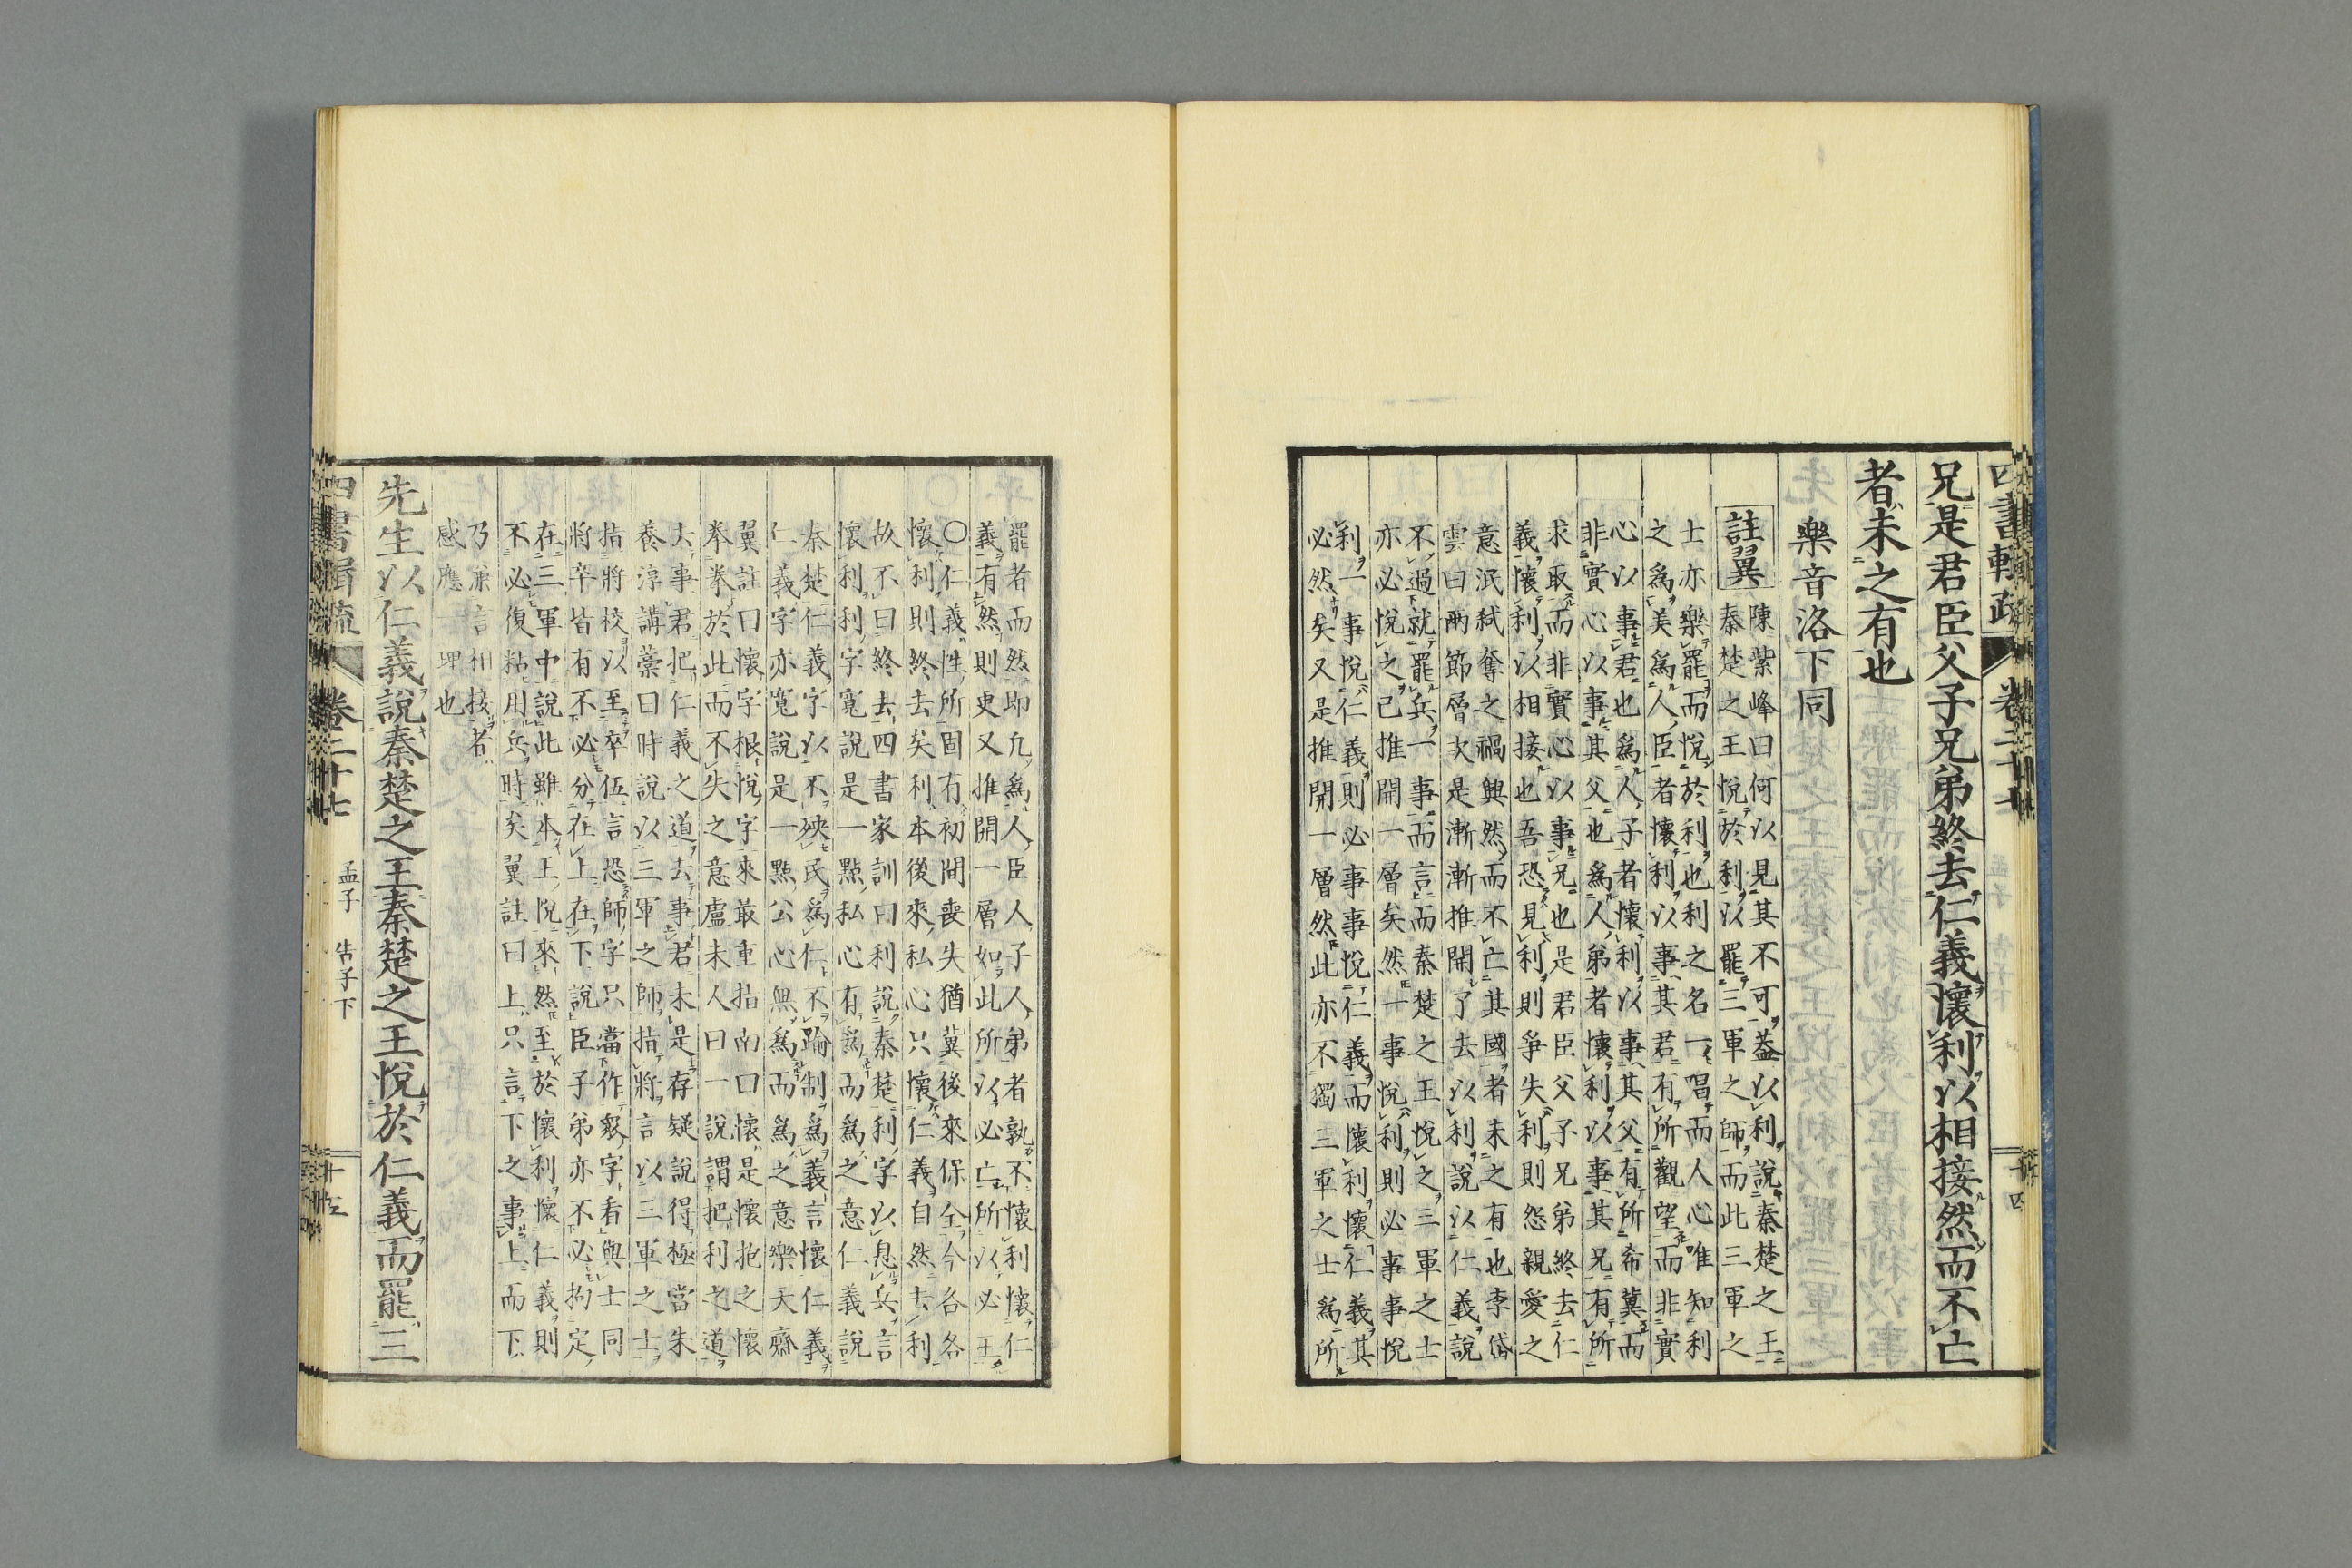 四書輯疏 卷二十七 十四
兄是君臣父子兄弟終去仁義懷利以相接然而不亡
者未之有也
樂音洛下同
註翼
陳紫峰曰何以見其不可蓋以利說秦楚之王
秦楚之王悅於利以罷三軍之師而此三軍之
士亦樂罷而悅於利也利之名一唱而人心唯知利
之爲美爲人臣者懷利以事其君有所觀望而非實
心以事君也爲人子者懷利以事其父有所希冀而
非實心以事其父也爲人弟者懷利以事其兄有所
求取而非實心以事兄也是君臣父子兄弟終去仁
義懷利以相接也吾恐見利則爭失利則怨親愛之
意泯弒奪之禍興然而不亡其國者未之有也李岱
雲曰兩節層次是漸漸推開了去以利說以仁義說
不過就罷兵一事而言而秦楚之王悅之三軍之士
亦必悅之已推開一層矣然一事悅利則必事事悅
利一事悅仁義則必事事悅仁義而懷利懷仁義其
必然矣又是推開一層然此亦不獨三軍之士爲所
罷者而然即凡爲人臣人子人弟者孰不懷利懷仁
義有然則更又推開一層如此所以必亡所以必王
○仁義性所固有初間喪失猶冀後來保全今各各
懷利則終去矣利本後來私心只懷仁義自然去利
故不曰終去四書家訓曰利說秦楚利字以息兵言
懷利利字寬說是一點私心有爲而爲之意仁義說
秦楚仁義字以不殃民爲仁不踰制爲義言懷仁義
仁義字亦寬說是一點公心無爲而爲之意樂天齋
翼註曰懷字根悅字來最重指南曰懷是懷抱之懷
拳拳於此而不失之意盧未人曰一說謂把利之道
去事君把仁義之道去事君未是存疑說得極當朱
養淳講蒙曰時說以三軍之師指將言以三軍之士
指將校以至卒伍言恐師字只當作衆字看與士同
將卒皆有不必分在上在下說臣子弟亦不必拘定
在三軍中說此雖本王悅來然至於懷利懷仁義則
不必復粘用兵時矣翼註曰上只言下之事上而下
乃兼言相接者
感應理也
先生以仁義說秦楚之王秦楚之王悅於仁義而罷三
四書輯疏 卷二十七 孟子 告子下 十五